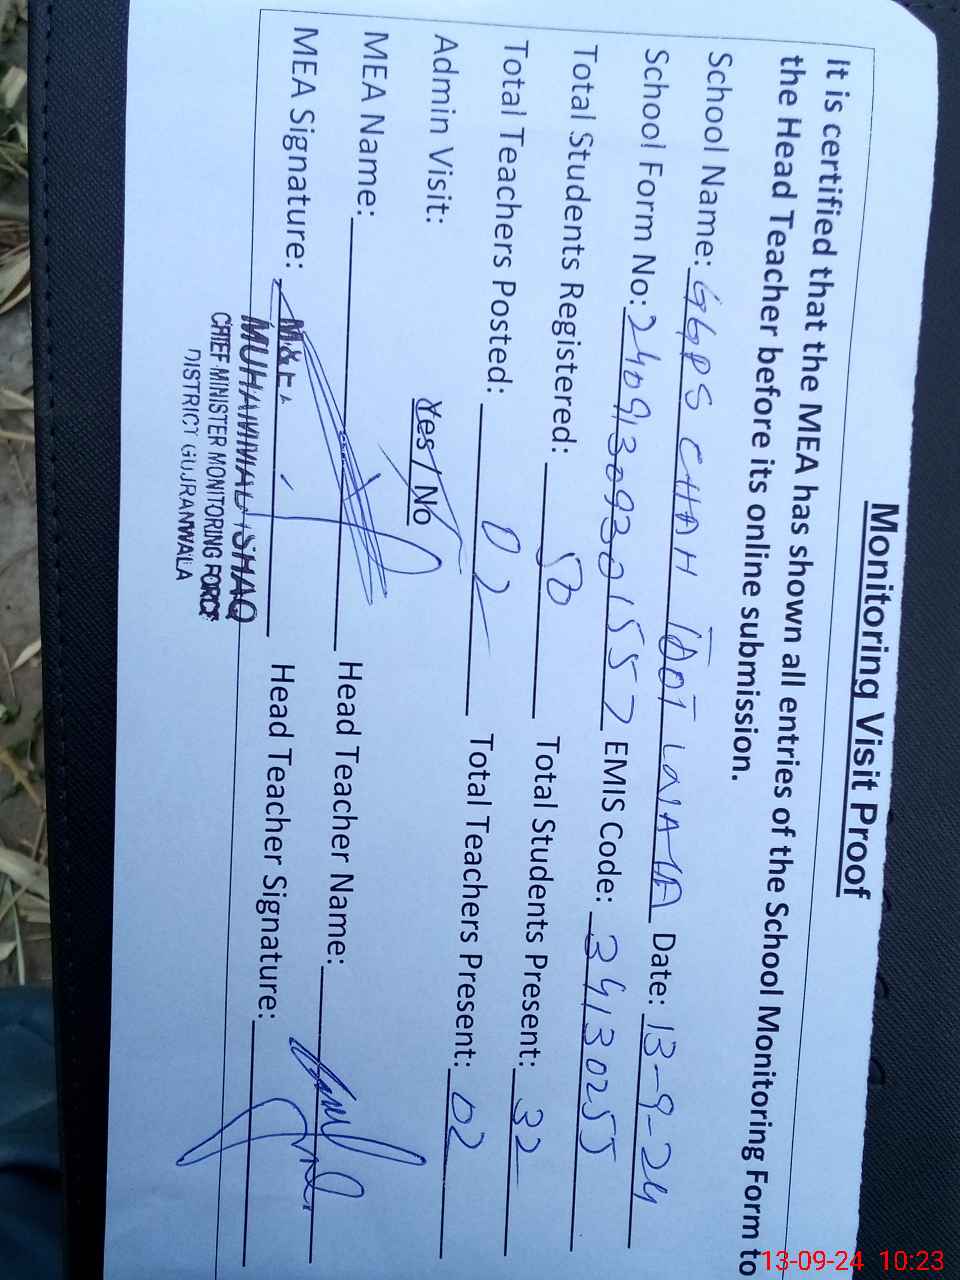 Monitoring Visit Proof
It is certified that the MEA has shown all entries of the School Monitoring Form to
the Head Teacher before its online submission.
School Name: GGPS CHAH Date: 13-9-24
School Form No: EMIS Code: 34130255
Total Students Registered: 50 Total Students Present: 32
Total Teachers Posted: 02 Total Teachers Present: 02
Admin Visit: Yes / No
MEA Name: Head Teacher Name:
MEA Signature: Head Teacher Signature:
MUHAMMAD ISHAQ
CHIEF MINISTER MONITORING FORCE
DISTRICT GUJRANWALA
13-09-24 10:23